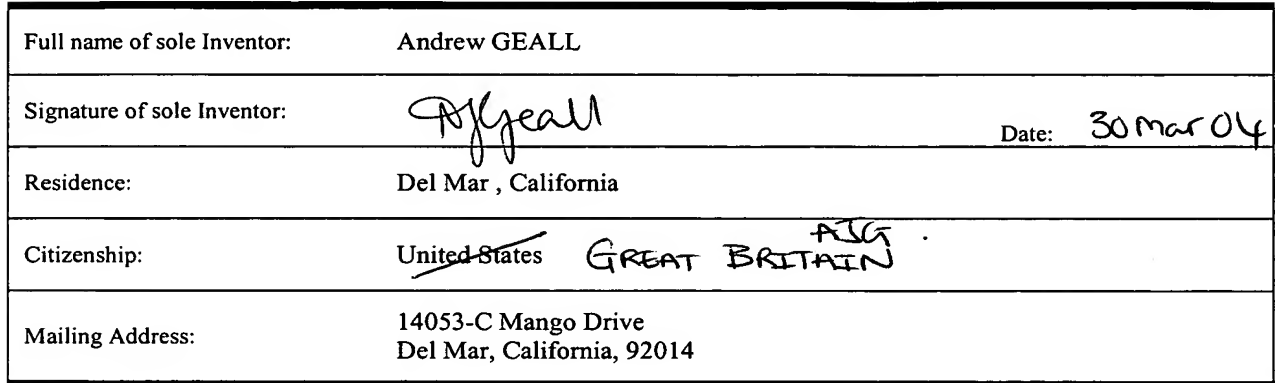 Full name of sole Inventor: Andrew GEALL
Signature of sole Inventor: AJGeall Date: 30 Mar 04
Residence: Del Mar , California
AJG
Citizenship: United States GREAT BRITAIN
Mailing Address: 14053-C Mango Drive
Del Mar, California, 92014